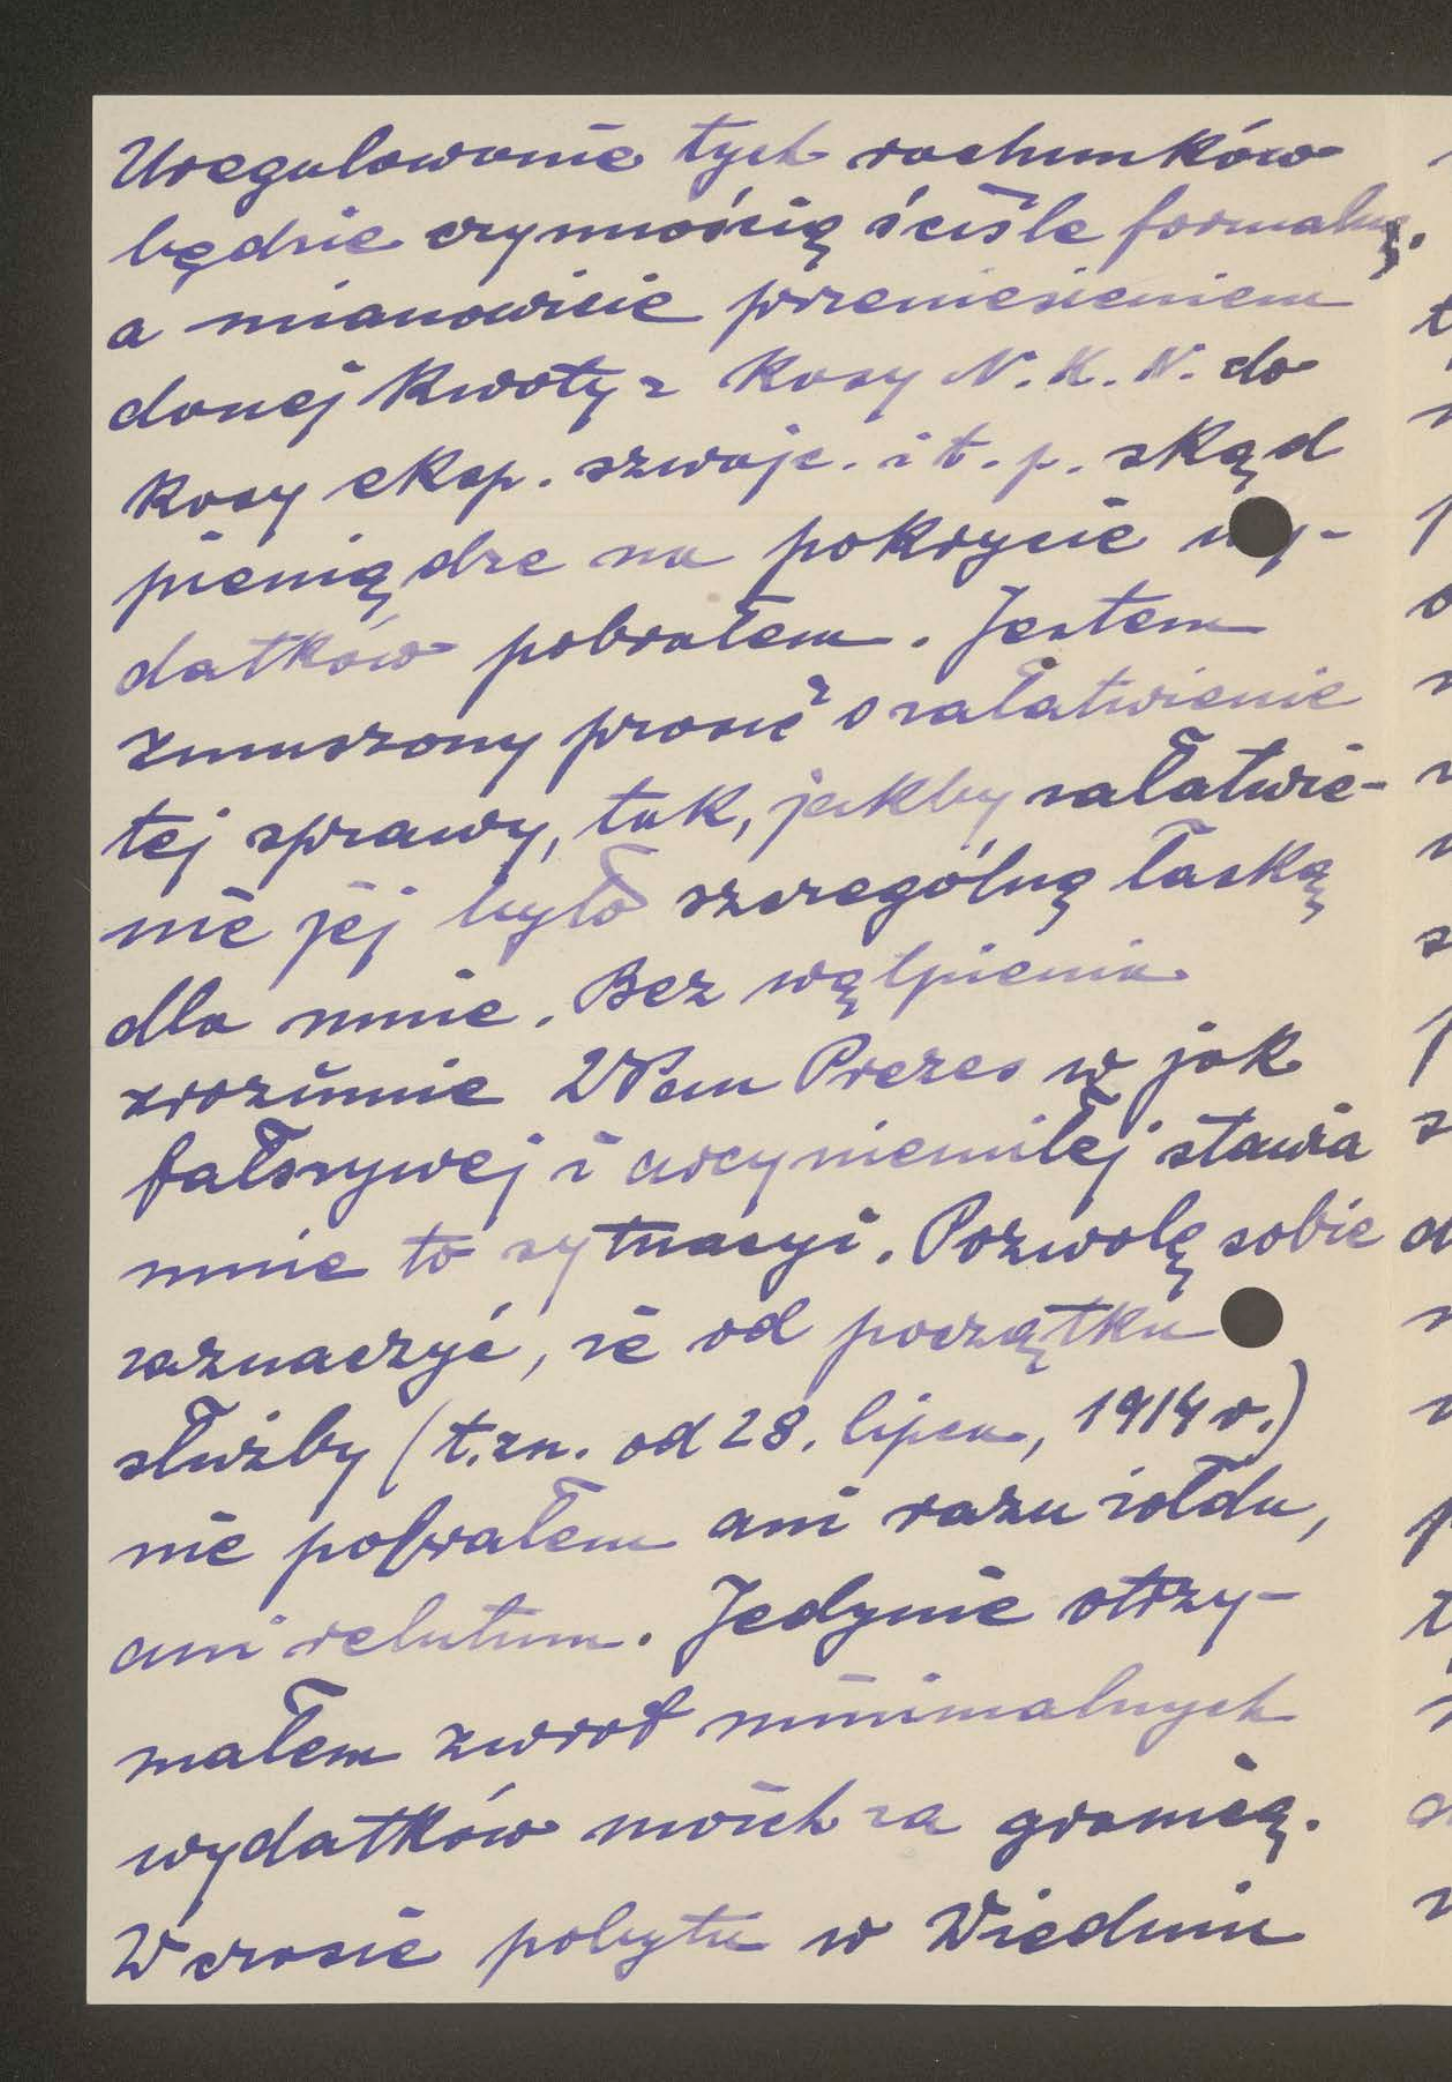 Uregulowanie tych rachunków
będzie czynnością ściśle formalną,
a mianowicie przeniesieniem
danej kwoty z kasy N.K.N. do
kasy eksp. szwajc. i t. p. skąd
pieniądze na pokrycie wy-
datków pobrałem. Jestem
zmuszony prosić o załatwienie
tej sprawy, tak, jakby załatwie-
nie jej było szczególną łaską
dla mnie. Bez wątpienia
zrozumie WPan Prezes w jak
fałszywej i arcyniemiłej stawia
mnie to sytuacyi. Pozwolę sobie
zaznaczyć, że od początku
służby (t.zn. od 28. lipca, 1914 r.)
nie pobrałem ani razu żołdu,
ani relutum. Jedynie otrzy-
małem zwrot minimalnych
wydatków moich za granicą.
W czasie pobytu w Wiedniu